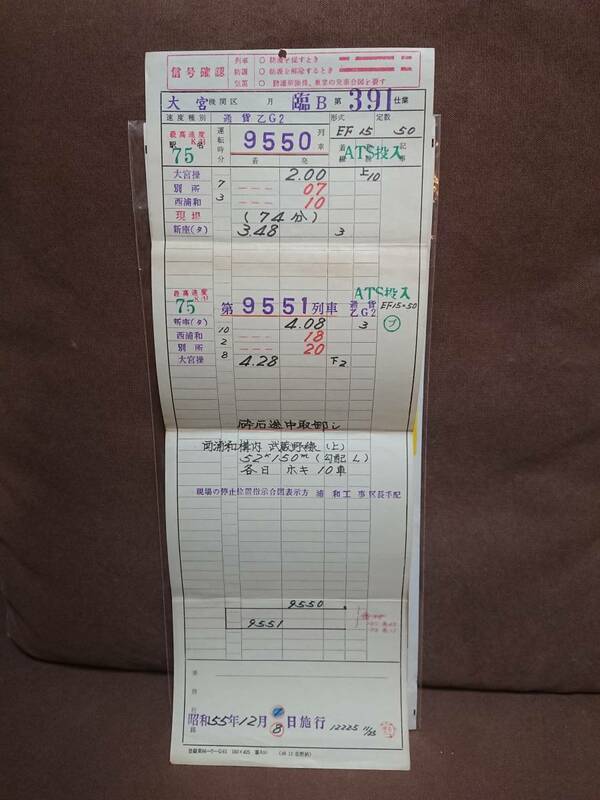 信号確認
列車 ○ 防護を促すとき
防護 ○ 防護を解除するとき
大宮 機関区 月 臨B 第 391 仕業
速度種別 通貨乙G2 形式 定数
EF15 50
最高速度 K-31
駅名
75
運転時分
9550 列車
着 発
着線
記事
ATS投入
大宮操 2.00 上10
7
別所 --- 07
3
西浦和 --- 10
現場 (74分)
新座(タ) 3.48 3
最高速度 K-31
75
第9551列車
ATS投入
通貨乙G2
EF15=50
新座(タ) 4.08 3
10
西浦和 --- 18
2
別所 --- 20
8
大宮操 4.28 下2
砕石途中取卸し
西浦和構内 武蔵野線(上)
52K150m(勾配 L)
各日 ホキ 10車
現場の停止位置指示合図表示方 浦和工事区長手配
9550
9551
昭和55年12月 7 8 日施行
12225 11/25